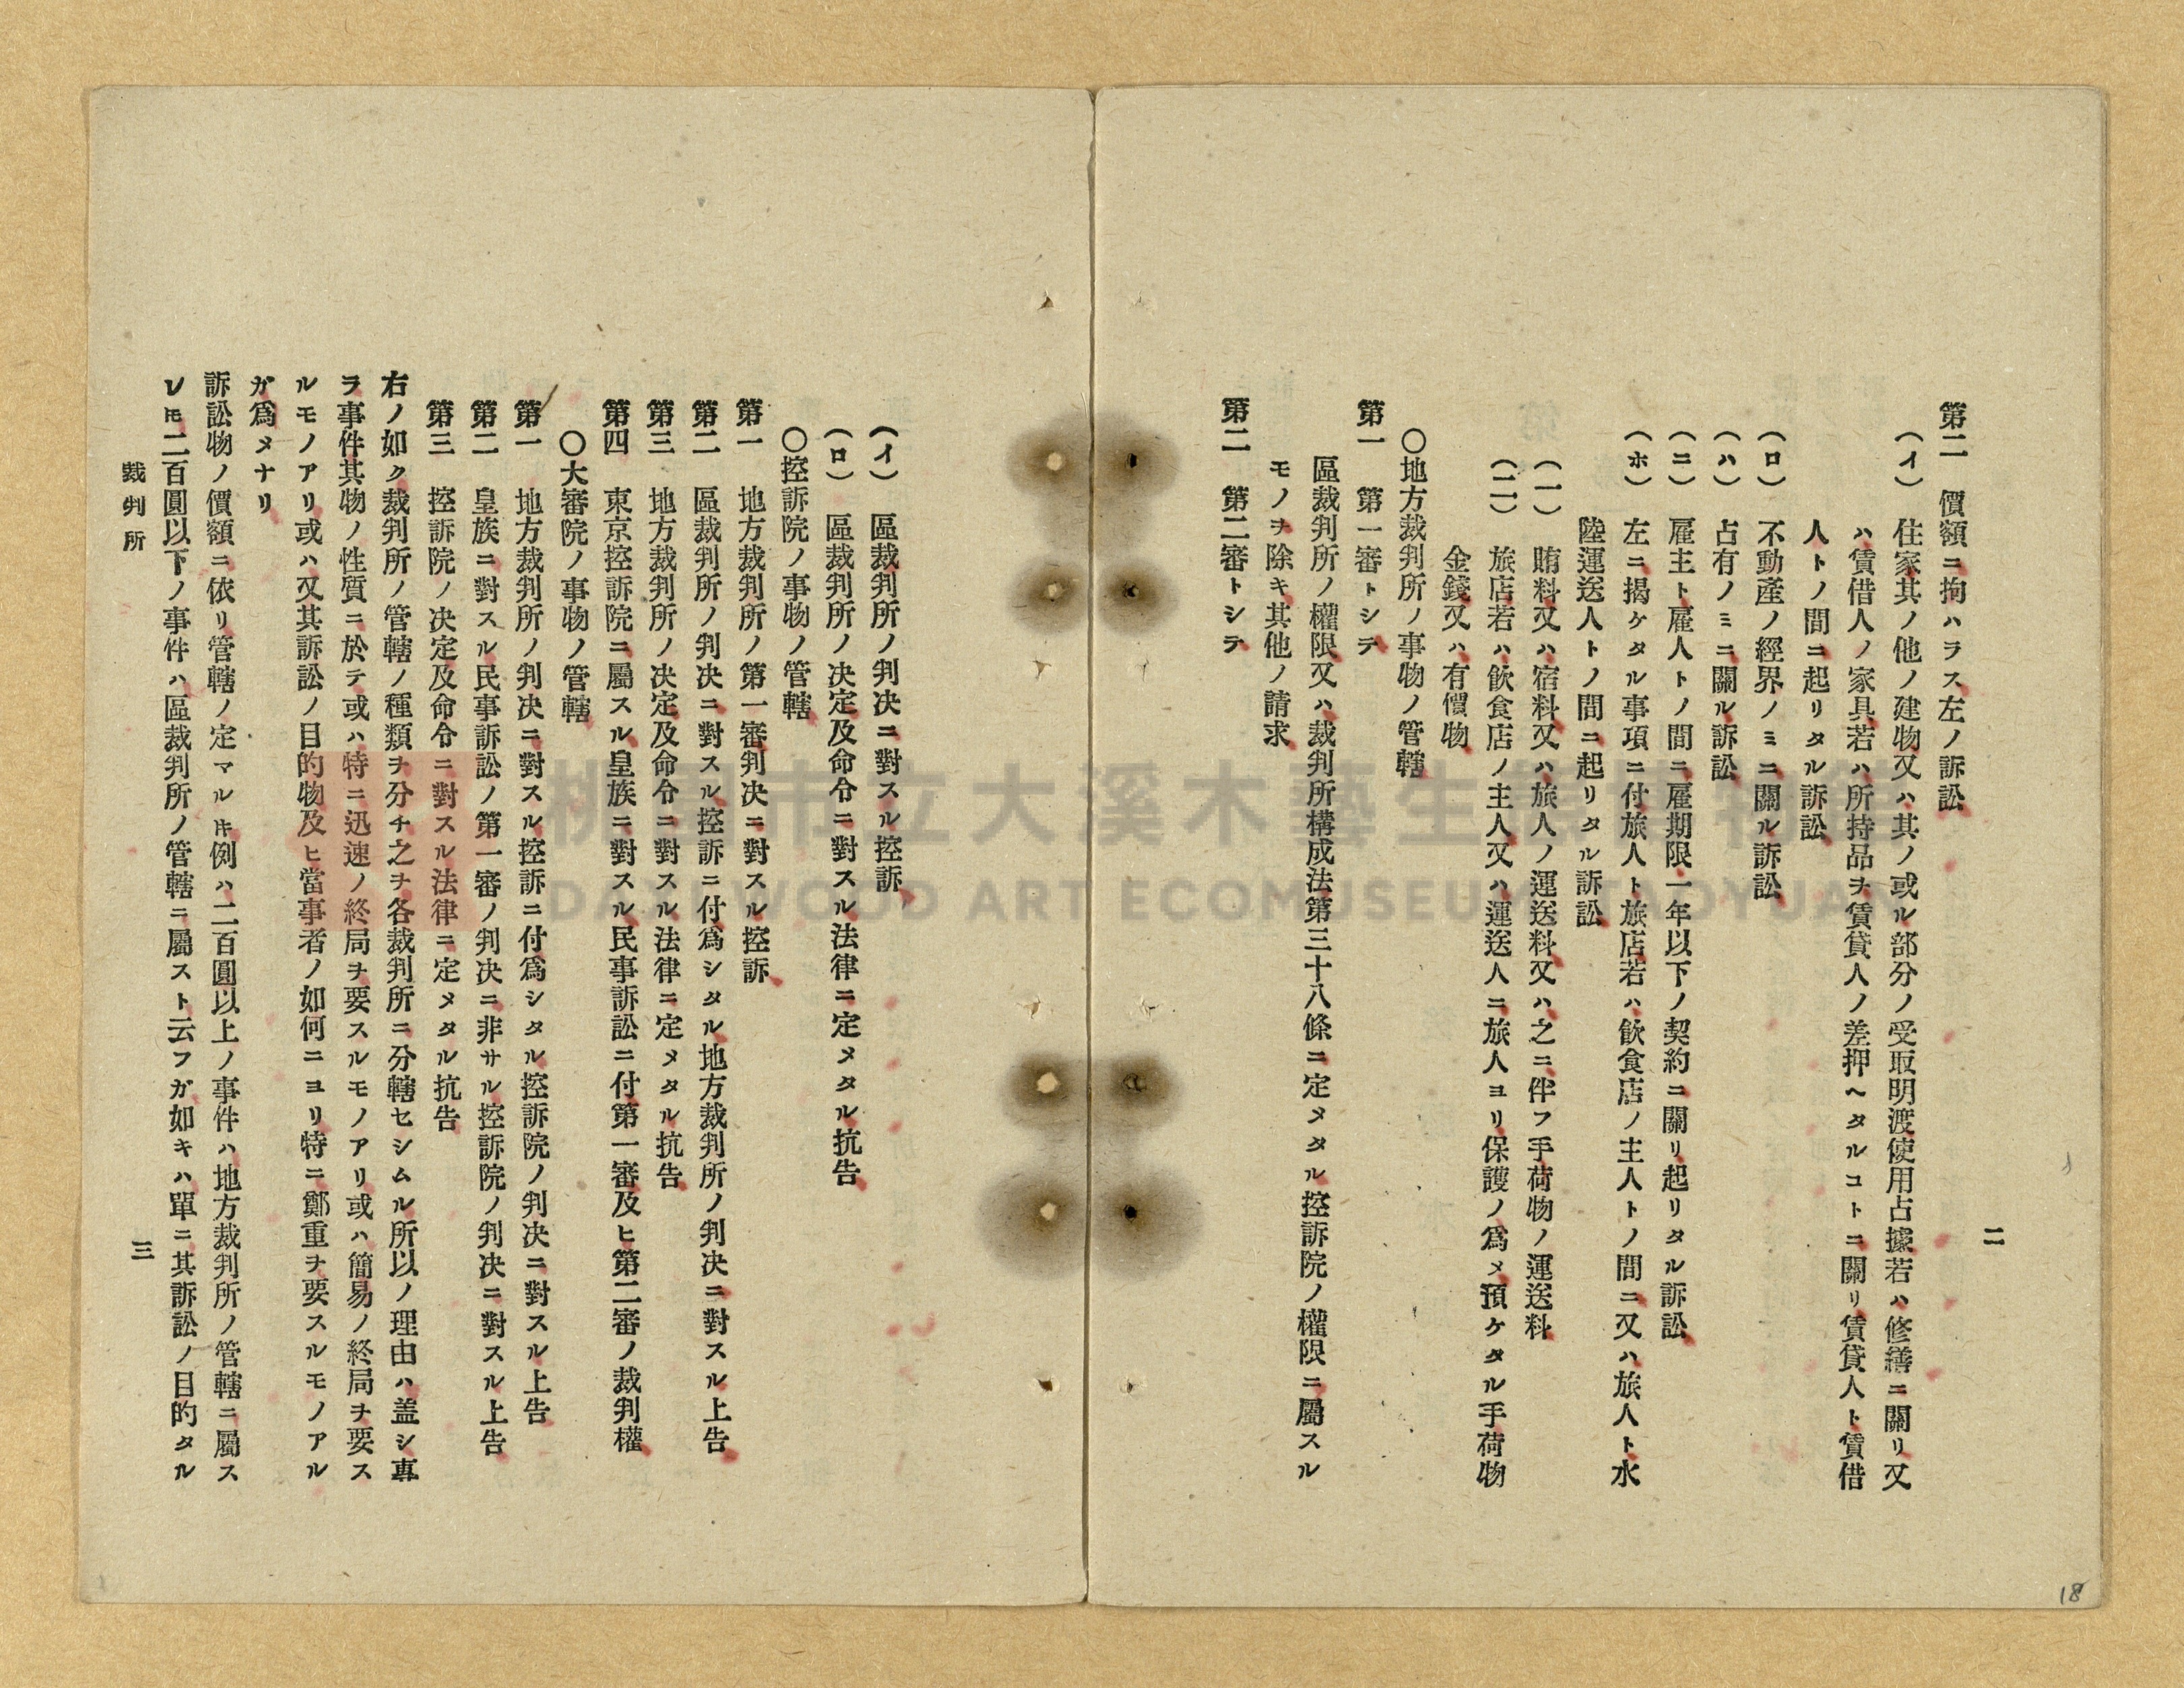 二
第二　價額ニ拘ハラス左ノ訴訟
（イ）　住家其ノ他ノ建物又ハ其ノ或ル部分ノ受取明渡使用占據若ハ修繕ニ關リ又
ハ賃借人ノ家具若ハ所持品ヲ賃貸人ノ差押ヘタルコトニ關リ賃貸人ト賃借
人トノ間ニ起リタル訴訟
（ロ）　不動產ノ經界ノミニ關ル訴訟
（ハ）　占有ノミニ關ル訴訟
（ニ）　雇主ト雇人トノ間ニ雇期限一年以下ノ契約ニ關リ起リタル訴訟
（ホ）　左ニ揭ケタル事項ニ付旅人ト旅店若ハ飮食店ノ主人トノ間ニ又ハ旅人ト水
陸運送人トノ間ニ起リタル訴訟
（一）　賄料又ハ宿料又ハ旅人ノ運送料又ハ之ニ伴フ手荷物ノ運送料
（二）　旅店若ハ飮食店ノ主人又ハ運送人ニ旅人ヨリ保護ノ爲メ預ケタル手荷物
金錢又ハ有價物
〇地方裁判所ノ事物ノ管轄
第一　第一審トシテ
區裁判所ノ權限又ハ裁判所構成法第三十八條ニ定メタル控訴院ノ權限ニ屬スル
モノヲ除キ其他ノ請求
第二　第二審トシテ
（イ）　區裁判所ノ判決ニ對スル控訴
（ロ）　區裁判所ノ決定及命令ニ對スル法律ニ定メタル抗告
〇控訴院ノ事物ノ管轄
第一　地方裁判所ノ第一審判決ニ對スル控訴
第二　區裁判所ノ判決ニ對スル控訴ニ付爲シタル地方裁判所ノ判決ニ對スル上告
第三　地方裁判所ノ決定及命令ニ對スル法律ニ定メタル抗告
第四　東京控訴院ニ屬スル皇族ニ對スル民事訴訟ニ付第一審及ヒ第二審ノ裁判權
〇大審院ノ事物ノ管轄
第一　地方裁判所ノ判決ニ對スル控訴ニ付爲シタル控訴院ノ判決ニ對スル上告
第二　皇族ニ對スル民事訴訟ノ第一審ノ判決ニ非サル控訴院ノ判決ニ對スル上告
第三　控訴院ノ決定及命令ニ對スル法律ニ定メタル抗告
右ノ如ク裁判所ノ管轄ノ種類ヲ分チ之ヲ各裁判所ニ分轄セシムル所以ノ理由ハ盖シ專
ラ事件其物ノ性質ニ於テ或ハ特ニ迅速ノ終局ヲ要スルモノアリ或ハ簡易ノ終局ヲ要ス
ルモノアリ或ハ又其訴訟ノ目的物及ヒ當事者ノ如何ニヨリ特ニ鄭重ヲ要スルモノアル
ガ爲メナリ
訴訟物ノ價額ニ依リ管轄ノ定マル𪜈例ハ二百圓以上ノ事件ハ地方裁判所ノ管轄ニ屬ス
レ𪜈二百圓以下ノ事件ハ區裁判所ノ管轄ニ屬スト云フガ如キハ單ニ其訴訟ノ目的タル
裁判所
三
18
桃園市立大溪木藝生態博物館
DAXI WOOD ART ECOMUSEUM TAOYUAN